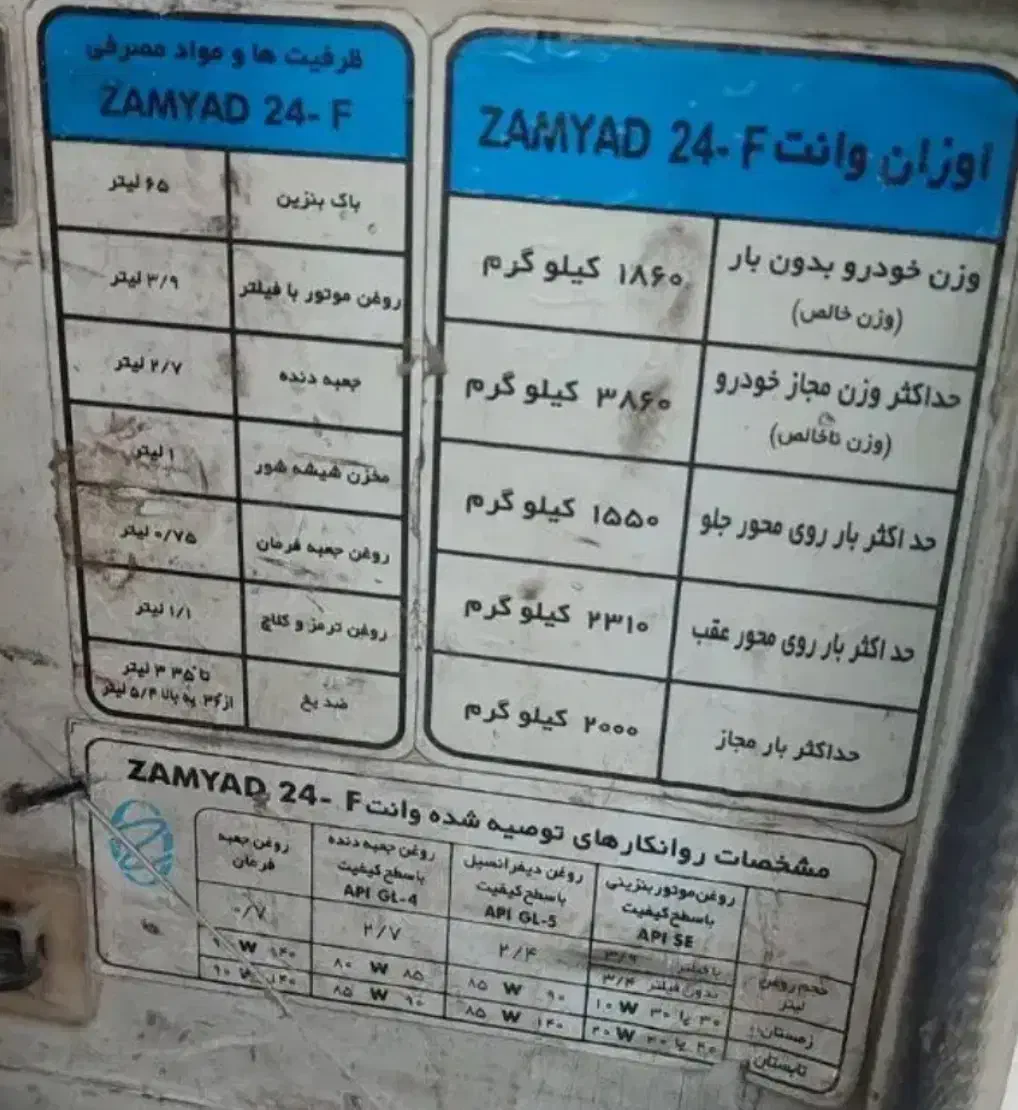 اوزان وانت ZAMYAD 24- F
وزن خودرو بدون بار ۱۸۶۰ کیلو گرم
(وزن خالص)
حداکثر وزن مجاز خودرو ۳۸۶۰ کیلو گرم
(وزن ناخالص)
حداکثر بار روی محور جلو ۱۵۵۰ کیلو گرم
حداکثر بار روی محور عقب ۲۳۱۰ کیلو گرم
حداکثر بار مجاز ۲۰۰۰ کیلو گرم
ظرفیت ها و مواد مصرفی
ZAMYAD 24- F
باک بنزین ۶۵ لیتر
روغن موتور با فیلتر ۳/۹ لیتر
جعبه دنده ۲/۷ لیتر
مخزن شیشه شور ۱ لیتر
روغن جعبه فرمان ۰/۷۵ لیتر
روغن ترمز و کلاچ ۱/۱ لیتر
ضد یخ
تا ۳۵ ۳ لیتر
از ۳۶ به بالا ۵/۴ لیتر
مشخصات روانکارهای توصیه شده وانت ZAMYAD 24- F
روغن موتور بنزینی
با سطح کیفیت
API SE
روغن دیفرانسیل
با سطح کیفیت
API GL-5
روغن جعبه دنده
با سطح کیفیت
API GL-4
روغن جعبه
فرمان
حجم روغن
لیتر
با فیلتر ۳/۹
بدون فیلتر ۳/۴
۲/۴
۲/۷
۰/۷
زمستان: ۳۰ یا ۳۰ W ۱۰
۹۰ W ۸۵
۸۵ W ۸۰
۱۴۰ W ۹۰
تابستان ۴۰ یا ۲۰ W ۲۰
۱۴۰ W ۸۵
۹۰ W ۸۵
۱۴۰ W ۹۰